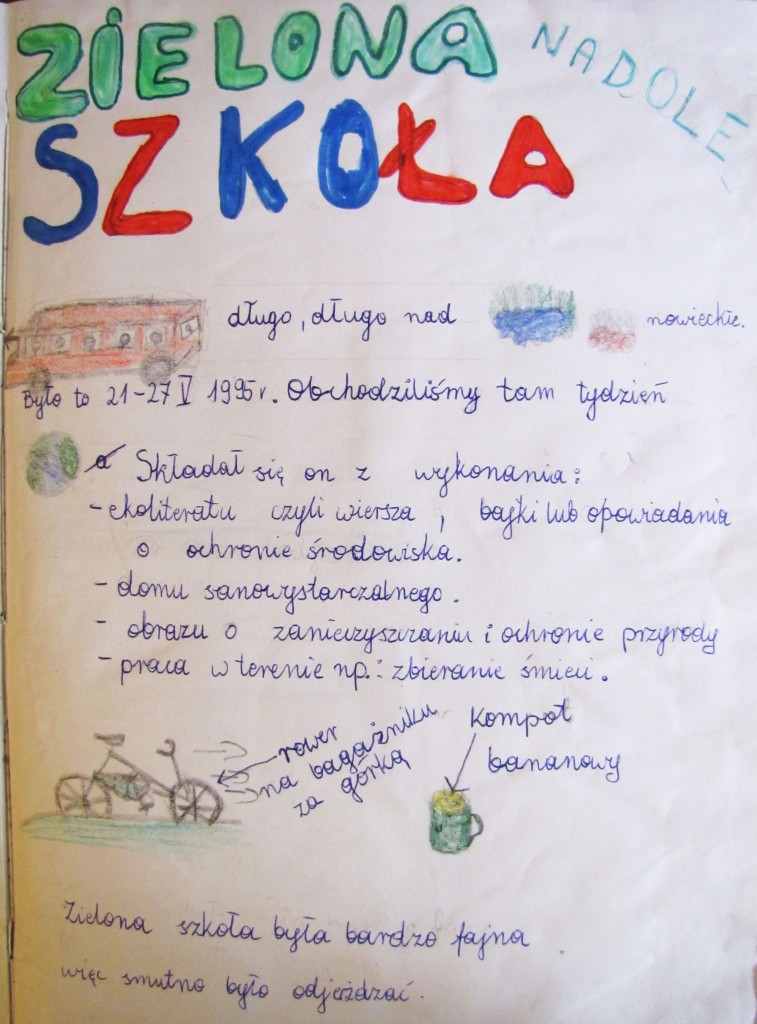 ZIELONA
NADOLE
SZKOŁA
długo, długo nad nowieckie.
Było to 21-27 V 1995 r. Obchodziliśmy tam tydzień
Składał się on z wykonania:
- ekoliteratu czyli wiersza, bajki lub opowiadania
o ochronie środowiska.
- domu samowystarczalnego.
- obrazu o zanieczyszczaniu i ochronie przyrody
- praca w terenie np.: zbieranie śmieci.
rower
na bagażniku
za górką
Kompot
bananowy
Zielona szkoła była bardzo fajna
więc smutno było odjeżdżać.